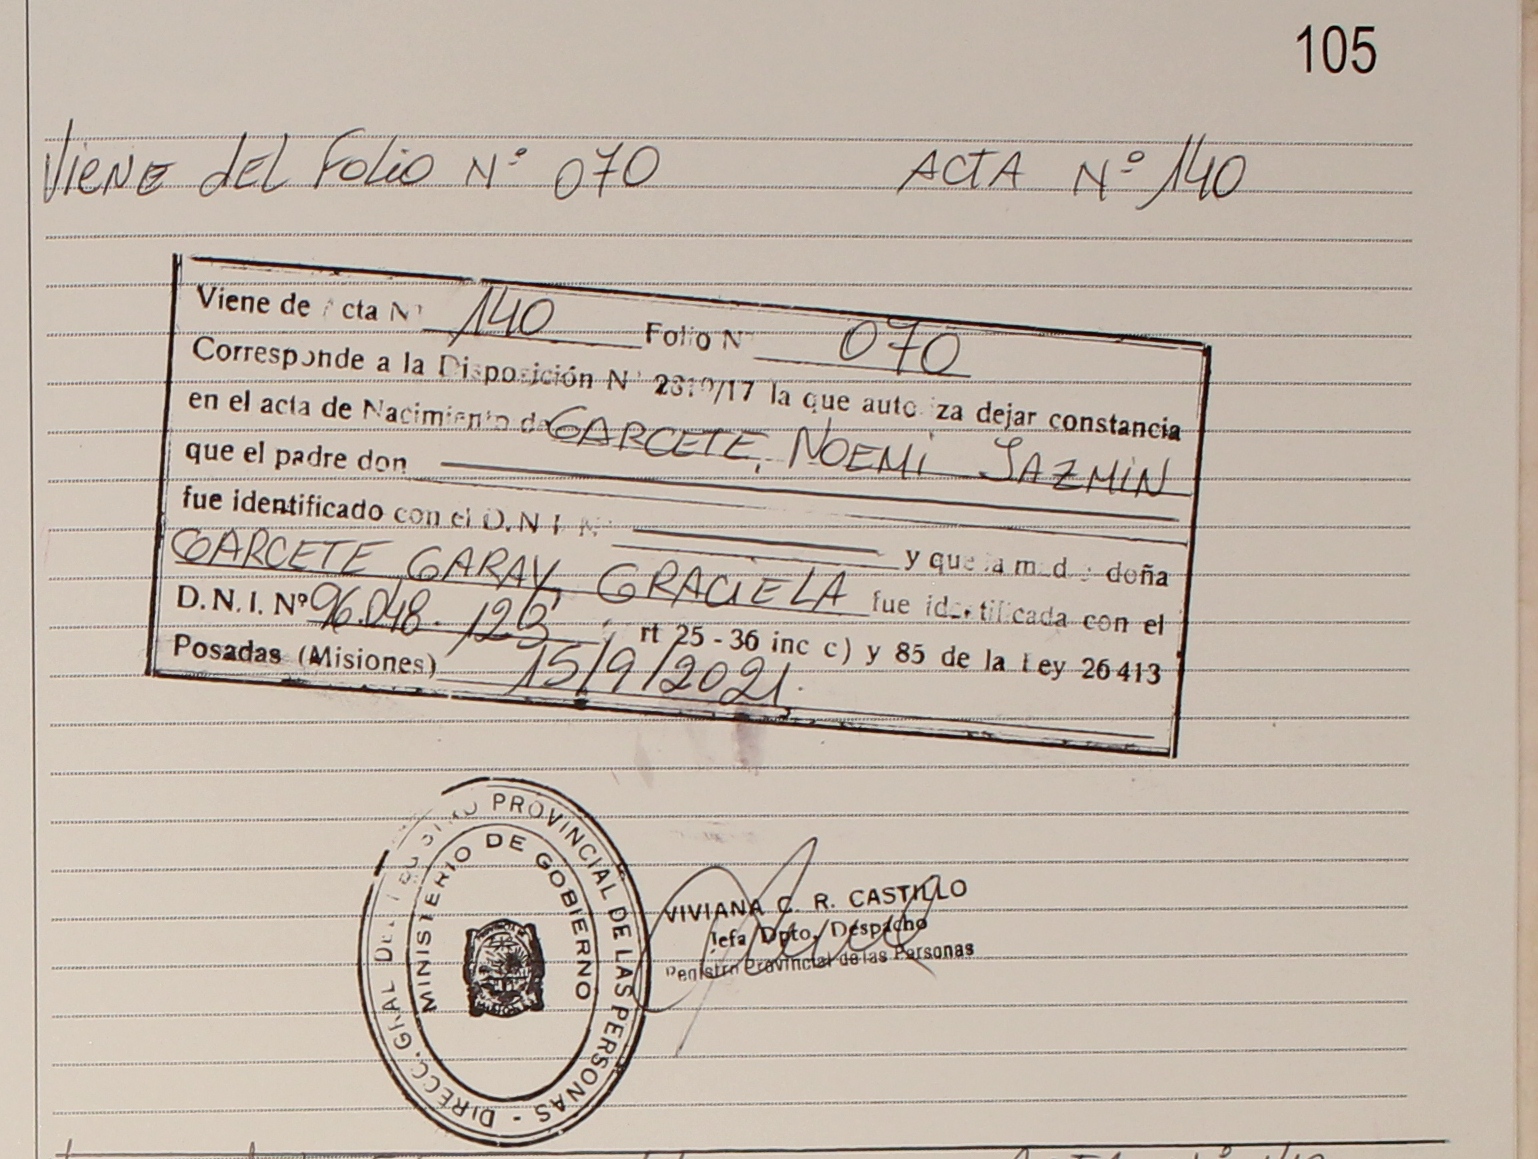 105
Viene del Folio N° 070 ACTA N° 140
Viene de Acta N° 140 Folio N° 070
Corresponde a la Disposición N° 2310/17 la que autoriza dejar constancia
en el acta de Nacimiento de GARCETE, NOEMI JAZMIN
que el padre don
fue identificado con el D.N.I. N° y que la madre doña
GARCETE GARAY, GRACIELA fue identificada con el
D.N.I. N° 96.048.123 rt 25 - 36 inc c) y 85 de la Ley 26413
Posadas (Misiones) 15/9/2021.
DIRECC. GRAL DEL REGISTRO PROVINCIAL DE LAS PERSONAS -
MINISTERIO DE GOBIERNO
VIVIANA C. R. CASTILLO
Jefa Dpto. Despacho
Registro Provincial de las Personas